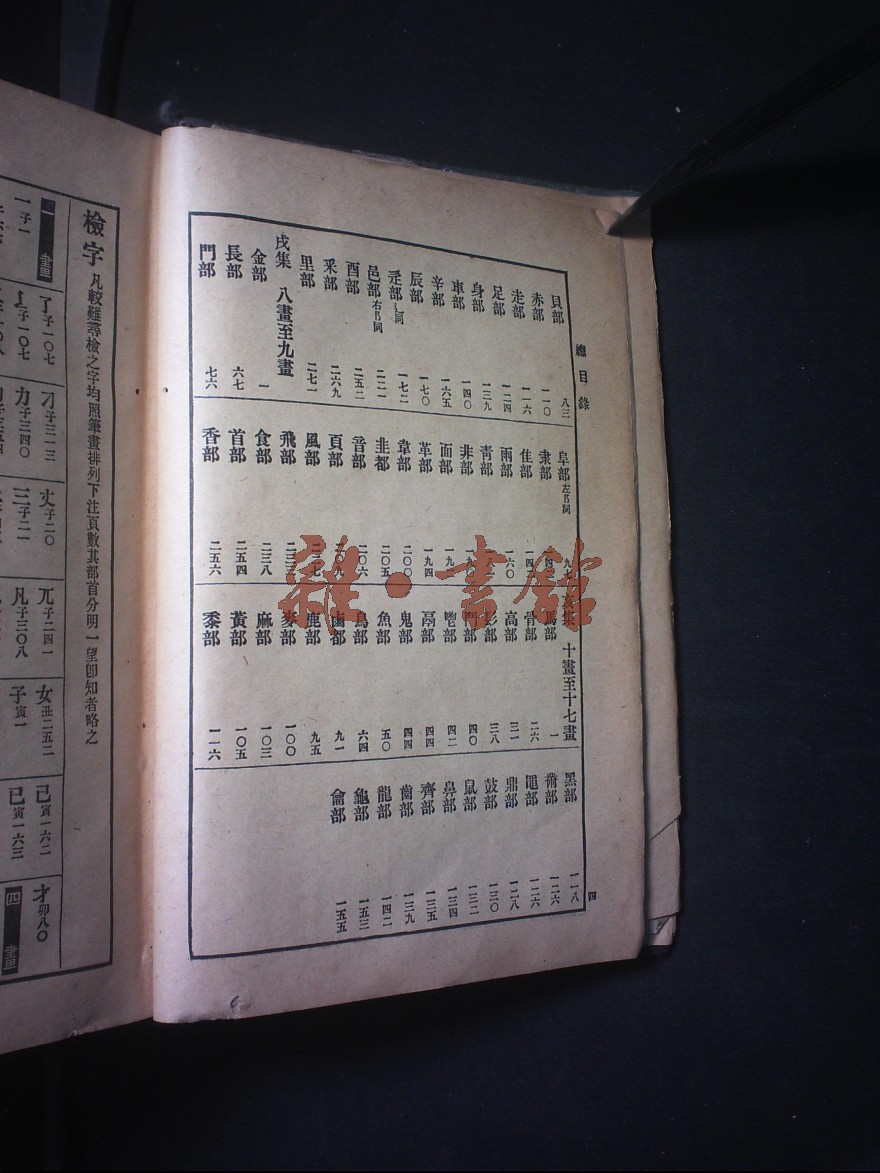 總目錄
貝部 八三
赤部 一一〇
走部 一一六
足部 一二四
身部 一三九
車部 一四〇
辛部 一六五
辰部 一七〇
辵部 辶同 一七二
邑部 右阝同 二二一
酉部 二五二
釆部 二六九
里部 二七一
戌集 八畫至九畫
金部 一
長部 六七
門部 七六
阜部 左阝同 九七
隶部
隹部
雨部 一六〇
靑部
非部
面部
革部 一九四
韋部 二〇〇
韭部 二〇五
音部 二〇六
頁部 二〇九
風部 二二七
飛部 二三三
食部 二三八
首部 二五四
香部 二五六
亥集 十畫至十七畫
馬部 一
骨部 二六
高部 三一
髟部 三八
鬥部 四〇
鬯部 四二
鬲部 四四
鬼部 四四
魚部 五〇
鳥部 六四
鹵部 九一
鹿部 九五
麥部 一〇〇
麻部 一〇三
黃部 一〇五
黍部 一一六
黑部 一一八
黹部 一二六
黽部 一二六
鼎部 一二八
鼓部 一三〇
鼠部 一三二
鼻部 一三四
齊部 一三五
齒部 一三九
龍部 一四二
龜部 一五三
龠部 一五五
四
檢字 凡較難尋檢之字均照筆畫排列下注頁數其部首分明一望卽知者略之
一畫
了 子一〇七
刁 子三一三
丈 子二〇
兀 子二四一
女 丑二五二
己 寅一六二
才 卯八〇
一 子一
亅 子一〇七
力 子三四〇
三 子二一
凡 子三〇八
子 寅一
已 寅一六三
四畫
雜·書館